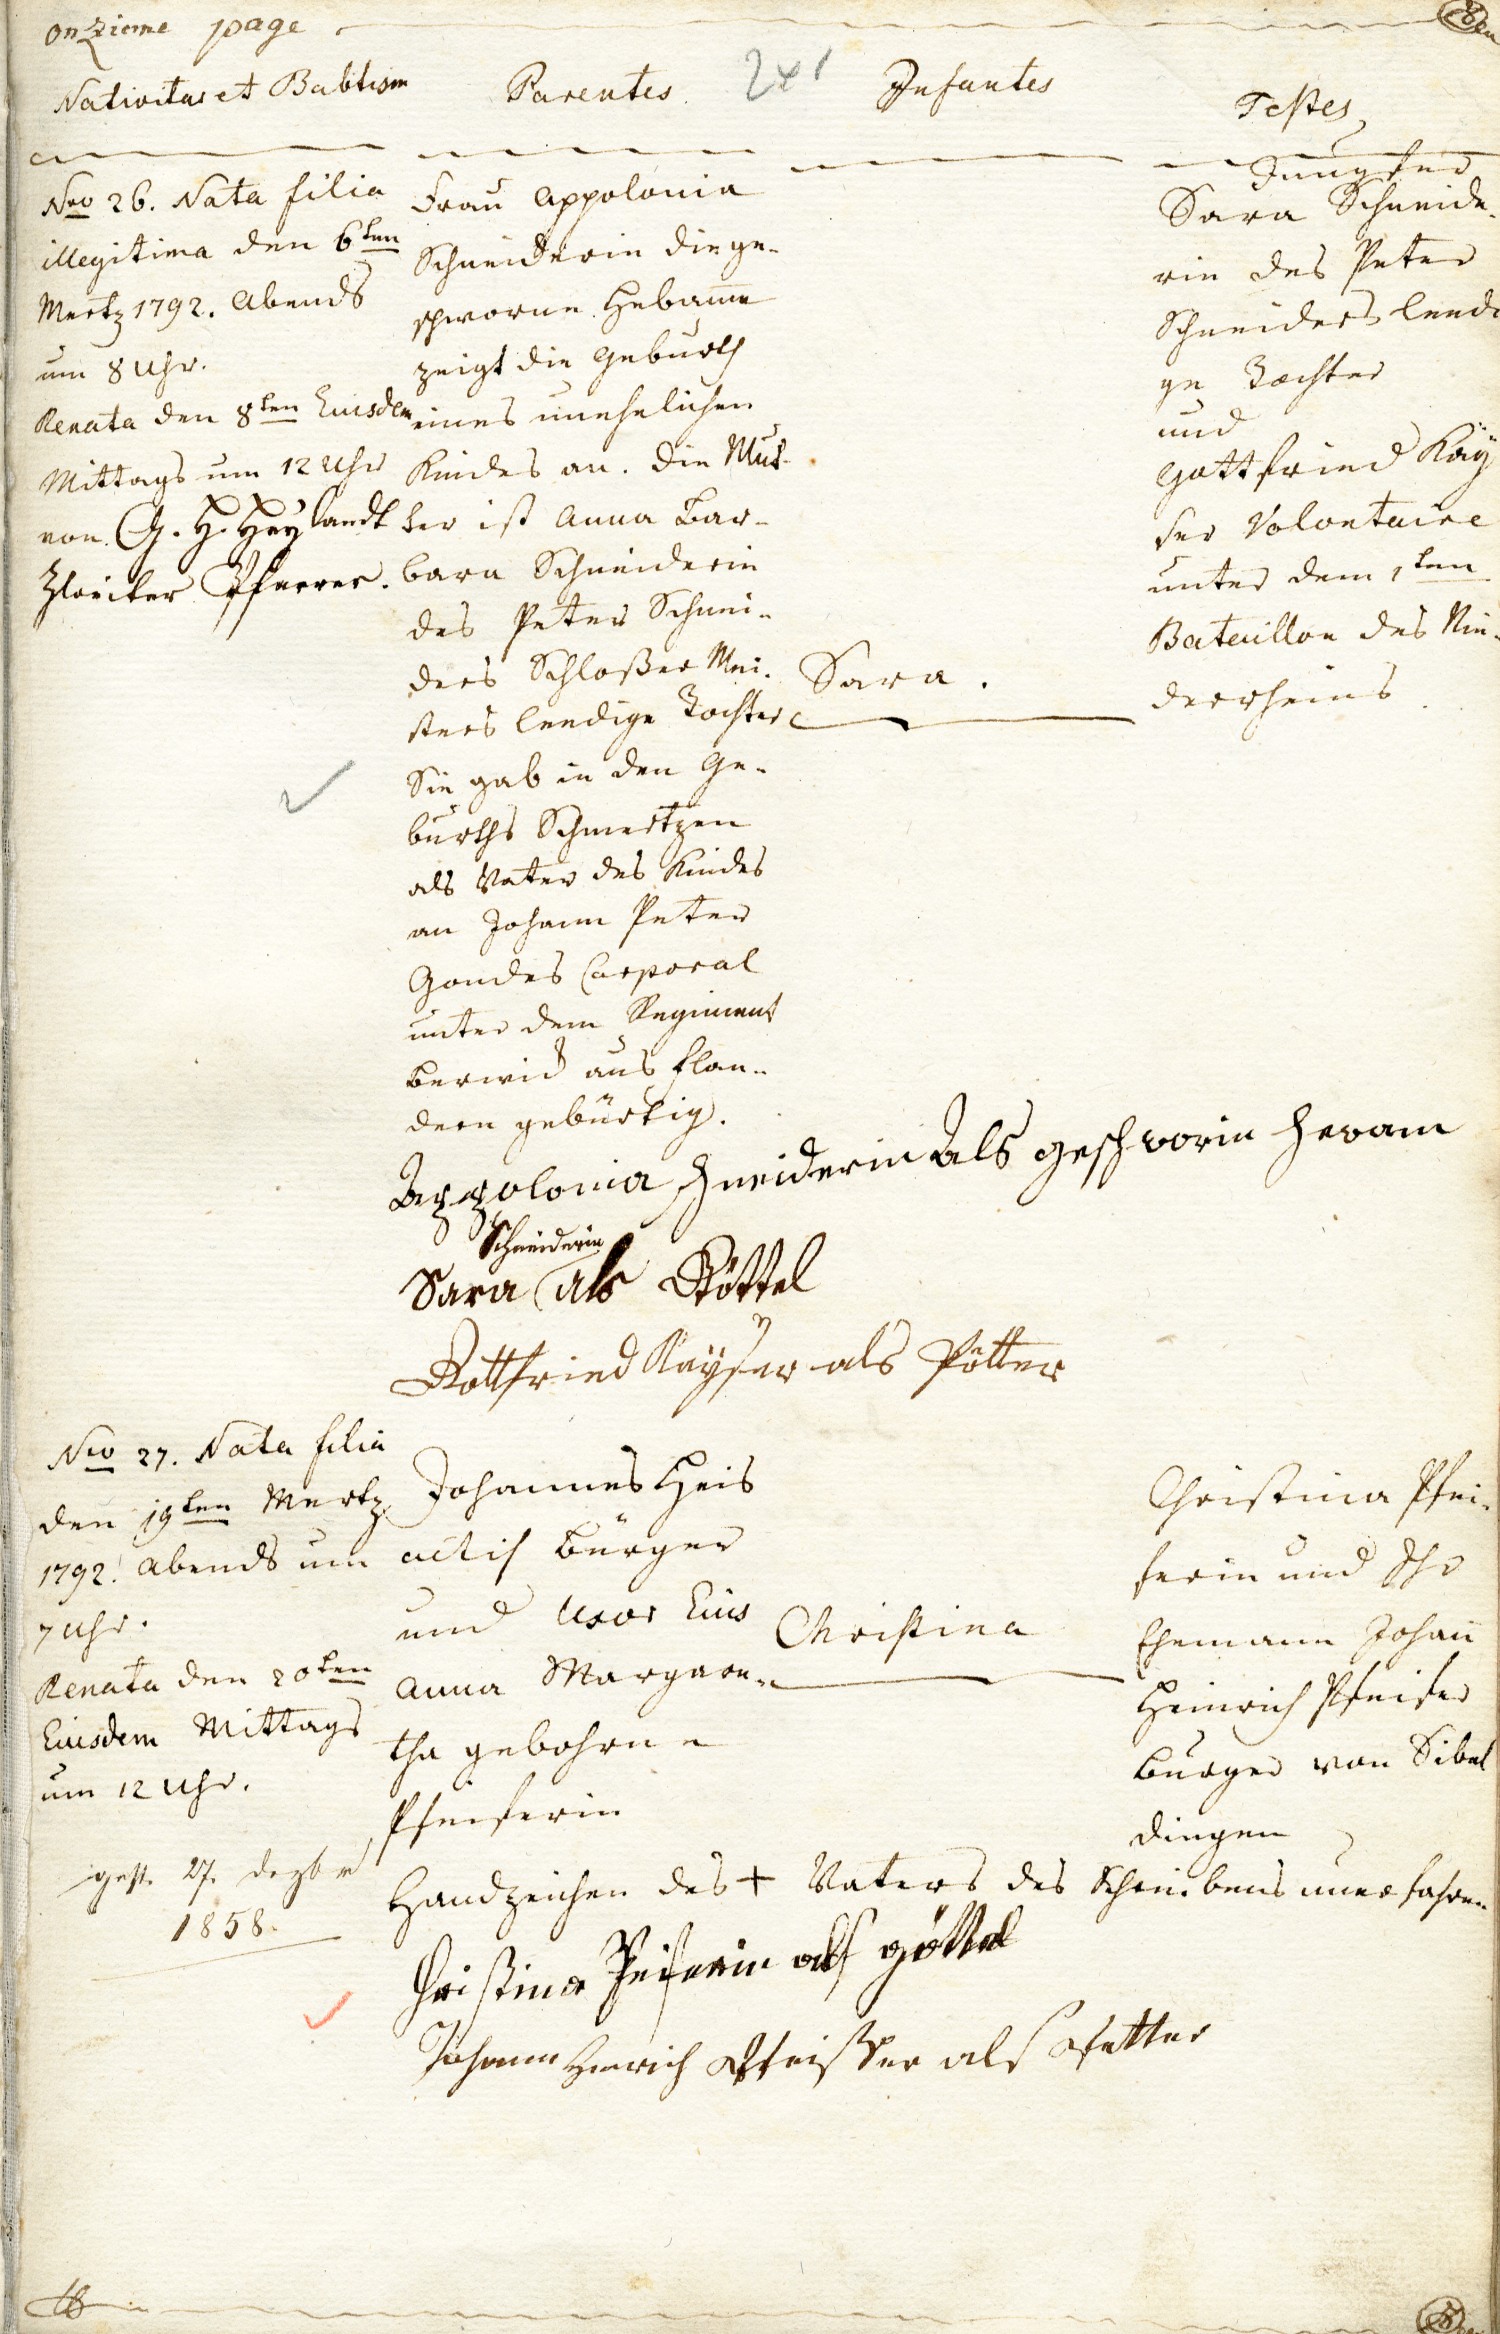 onzieme page
Nativitas et Babtism
Parentes
Infantes
Testes
Nro 26. Nata filia
illegitima den 6ten
Mertz 1792. Abends
um 8 Uhr.
Renata den 8ten Eiusdem
Mittags um 12 Uhr
von G. H. Heylandt
Pfarrer.
Frau Appolonia
Schneiderin die ge-
schworne Hebamme
zeigt die Geburth
eines unehelichen
Kindes an. die Mut-
ter ist Anna Bar-
bara Schneiderin
des Peter Schnei-
ders Schloßer Mei-
sters leedige Tochter
Sie gab in den Ge-
burths Schmertzen
als Vater des Kindes
an Johann Peter
Gondes Corporal
unter dem Regiment
Berwick aus Flan-
dern gebürtig.
Sara.
Jungfer
Sara Schneide-
rin des Peter
Schneiders leedi
ge Tochter
und
Gottfried Kay
ser Volontaire
unter dem 1ten
Bataillon des Nie-
derrheins
Appolonia Schneiderin Als geschworin hevam
Schneiderin
Sara als Göttel
Gottfried Kayser als Pötter
Nro 27. Nata filia
den 19ten Mertz
1792. Abends um
7 Uhr.
Renata den 20ten
Eiusdem Mittags
um 12 Uhr.
gest. 27. Dezbr
1858.
Johannes Heis
activ Bürger
und Uxor Eius
Anna Margare-
tha gebohrne
Pfeiferin
Christina
Christina Pfei-
ferin und Ihr
Ehemann Johann
Heinrich Pfeifer
Burger von Sibel
dingen
Handzeichen des + Vaters des Schreibens unerfahren
Christina Peiferin als göttel
Johann Henrich Pfeiffer als Pfetter